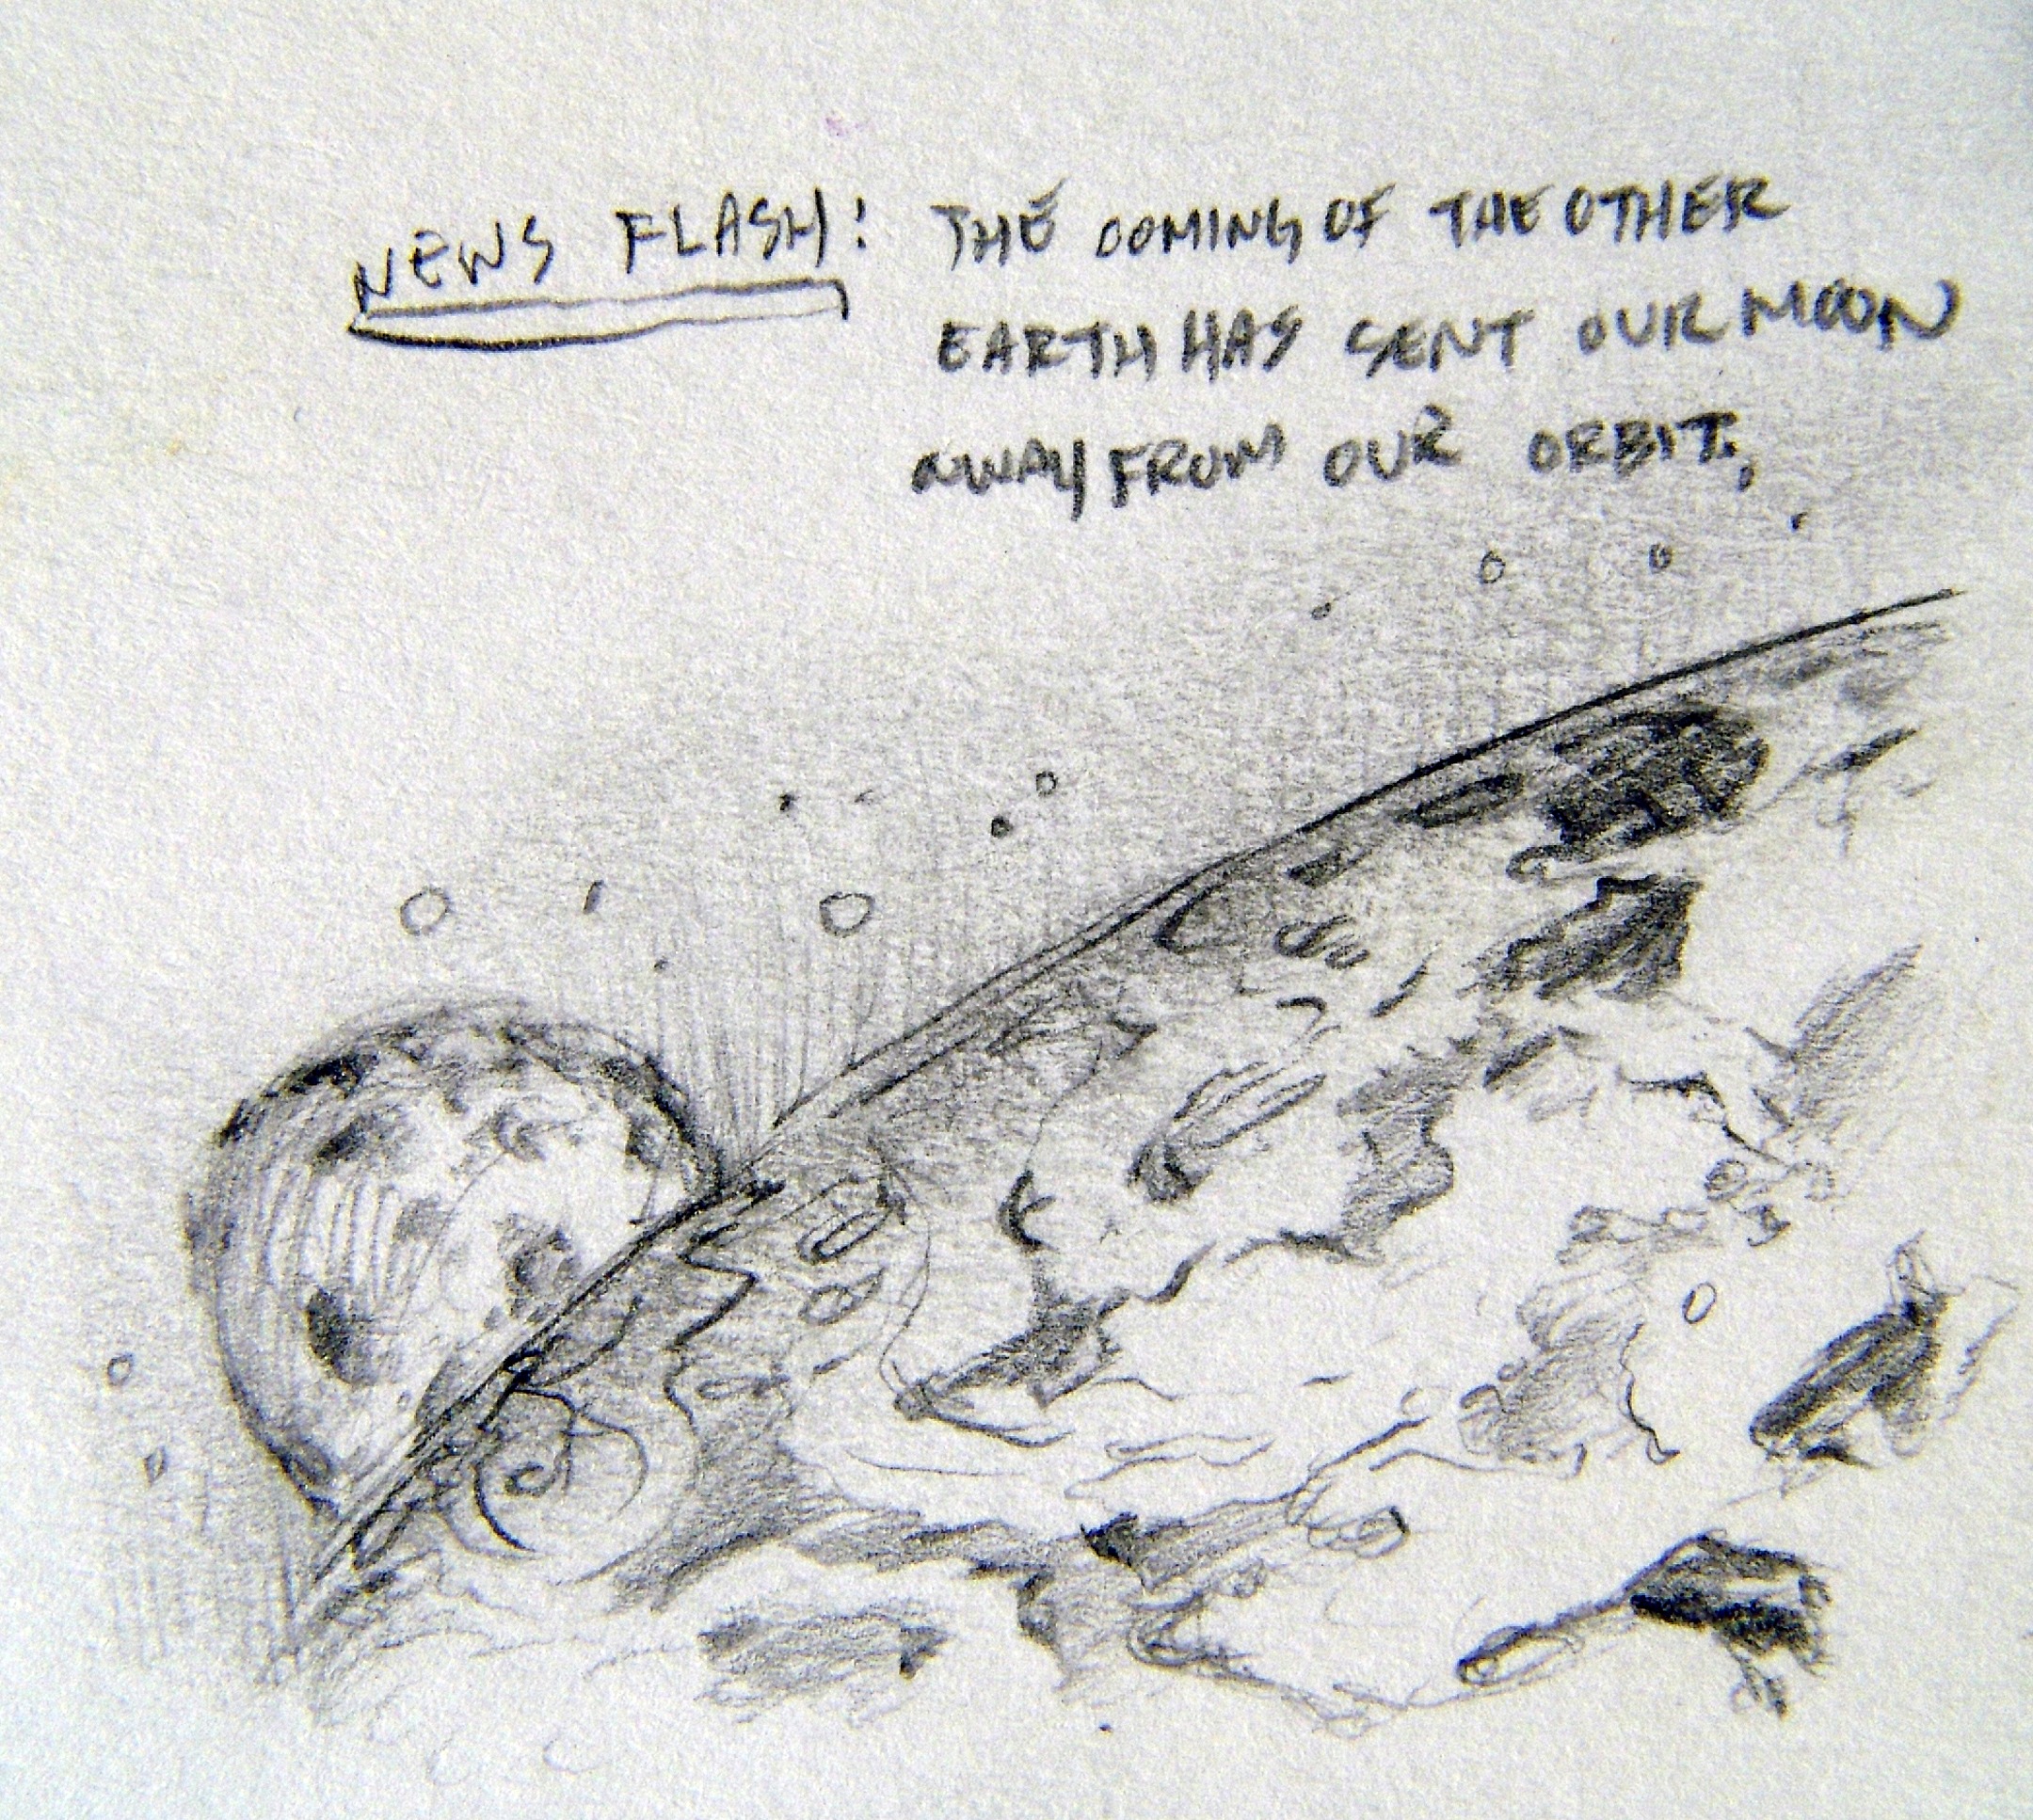 NEWS FLASH! THE COMING OF THE OTHER
EARTH HAS SENT OUR MOON
AWAY FROM OUR ORBIT,